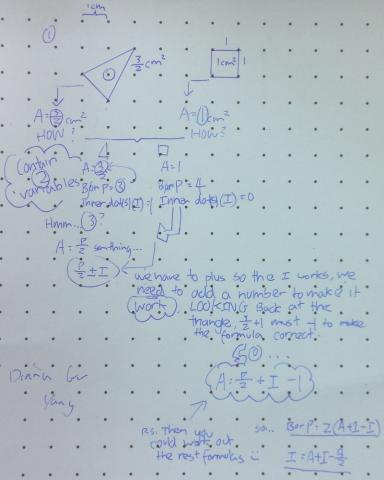 1cm
①
3/2 cm²
1
1cm² 1
A = 3/2 cm²
HOW?
A = 1 cm²
HOW?
Contain 2 variables
A = 3/2
B or P = 3
Inner dots (I) = 1
A = 1
B or P = 4
Inner dots (I) = 0
Hmm... 3?
A = P/2 something...
P/2 ± I
we have to plus so the I works, we
need to add a number to make it
work. LOOKING Back at the
triangle, 3/2 + 1 must -1 to make
the formula correct.
So ...
A = P/2 + I - 1
P.s. then you
could work out
the rest formulas
so.. B or P = 2(A+1-I)
I = A+1-B/2
Yang